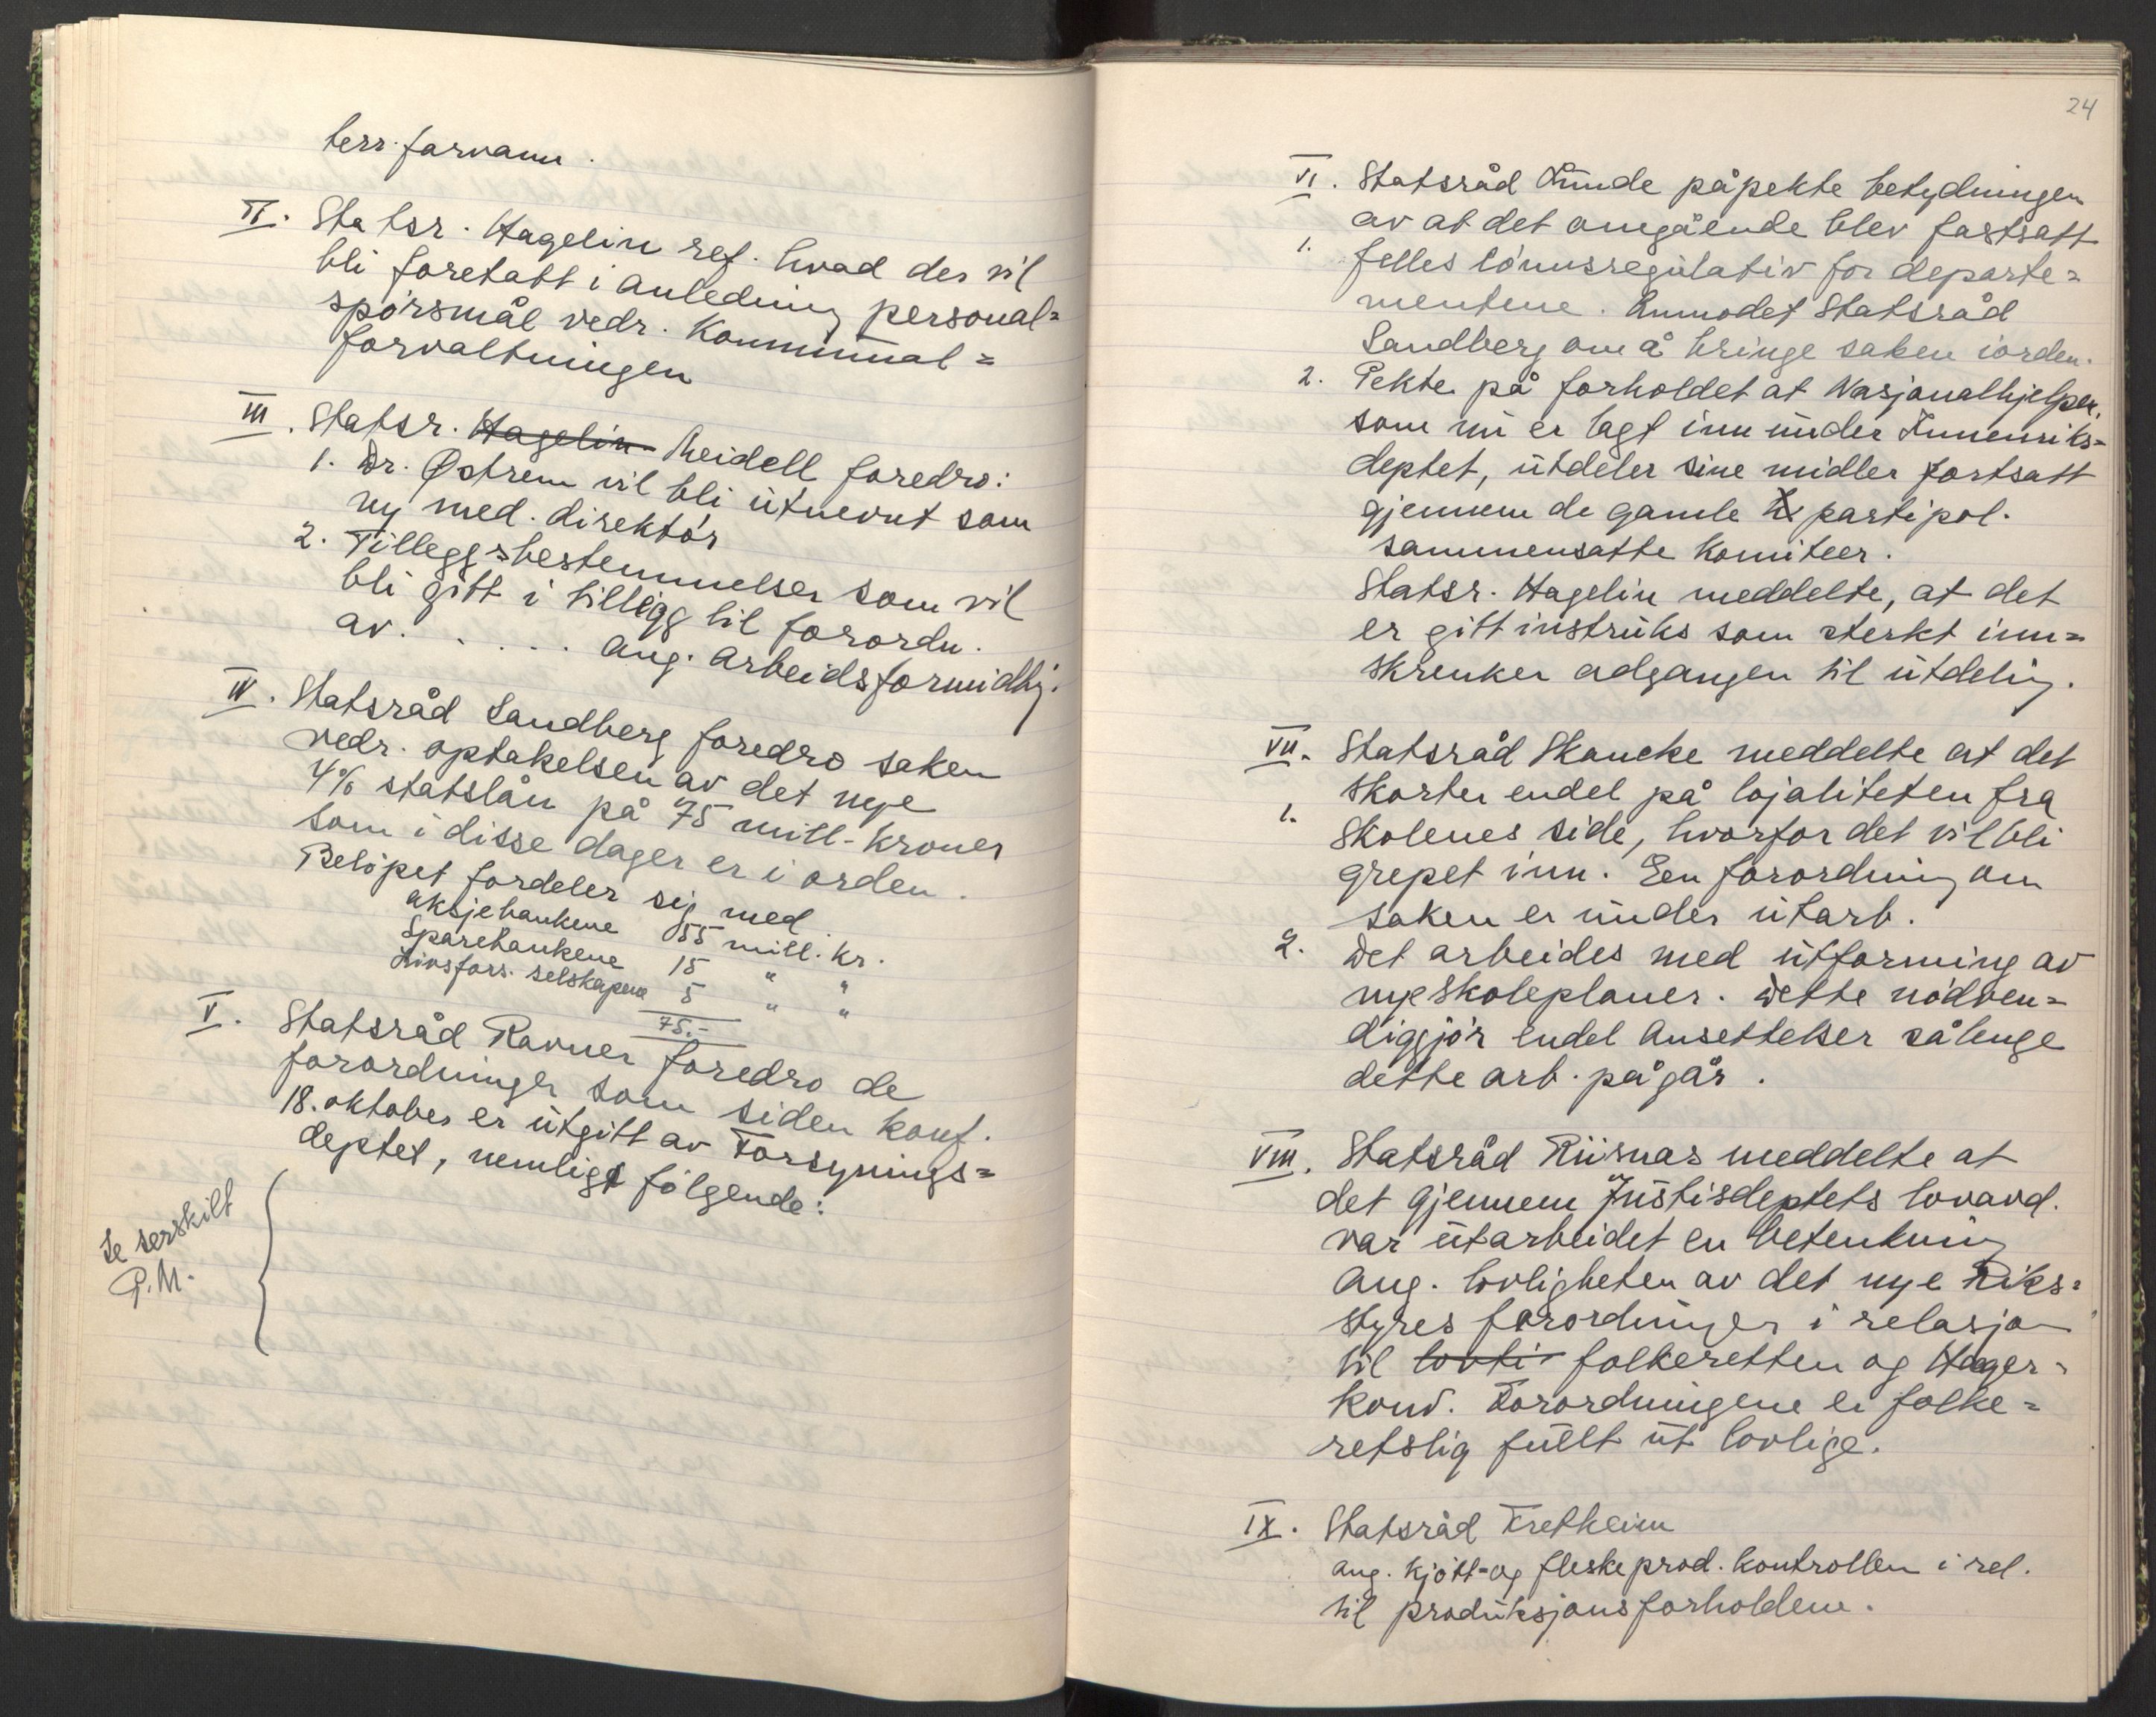 terr. farvann.
II. Statsr. Hagelin ref. hvad der vil
bli foretatt i anledning personal=
spörsmål vedr. Kommunal=
forvaltningen
III. Statsr. Hagelin Meidell foredro:
1. Dr. Østrem vil bli utnevnt som
ny med. direktör
2. Tilleggsbestemmelser som vil
bli gitt i tillegg til forordn.
av. . . . . ang. Arbeidsformidlg.
IV. Statsråd Sandberg foredro saken
vedr. optakelsen av det nye
4% statslån på 75 mill. kroner
som i disse dager er i orden.
Belöpet fordeler sig med
aksjebankene 55 mill. kr.
Sparebankene 15 " "
Livsfors. selskapene 5 " "
75.-
V. Statsråd Ravner foredro de
forordninger som siden konf.
18. oktober er utgitt av Forsynings=
deptet, nemlig følgende:
Se serskilt
P.M.
24
VI. Statsråd Lunde påpekte betydningen
av at det omgående blev fastsatt
1. felles lönnsregulativ for departe=
mentene. Anmodet Statsråd
Sandberg om å bringe saken iorden.
2. Pekte på forholdet at Nasjonalhjelpen,
som nu er lagt inn under Innenriks=
deptet, utdeler sine midler fortsatt
gjennem de gamle partipol.
sammensatte Komiteer.
Statsr. Hagelin meddelte, at det
er gitt instruks som sterkt inn=
skrenker adgangen til utdeling.
VII. Statsråd Skancke meddelte at det
skorter endel på lojaliteten fra
1. skolenes side, hvorfor det vil bli
grepet inn. Een forordning om
saken er under utarb.
2. Det arbeides med utforming av
nye skoleplaner. Dette nödven=
diggjör endel Ansettelser sålenge
dette arb. pågår.
VIII. Statsråd Riisnæs meddelte at
det gjennem Justisdeptets lovavd.
var utarbeidet en betenkning
ang. lovligheten av det nye Riks=
styres forordninger i relasjon
til lovli folkeretten og Haager=
konv. Forordningene er folke=
retslig fullt ut lovlige.
IX. Statsråd Fretheim
ang. kjött= og fleskeprod. kontrollen i rel.
til produksjonsforholdene.